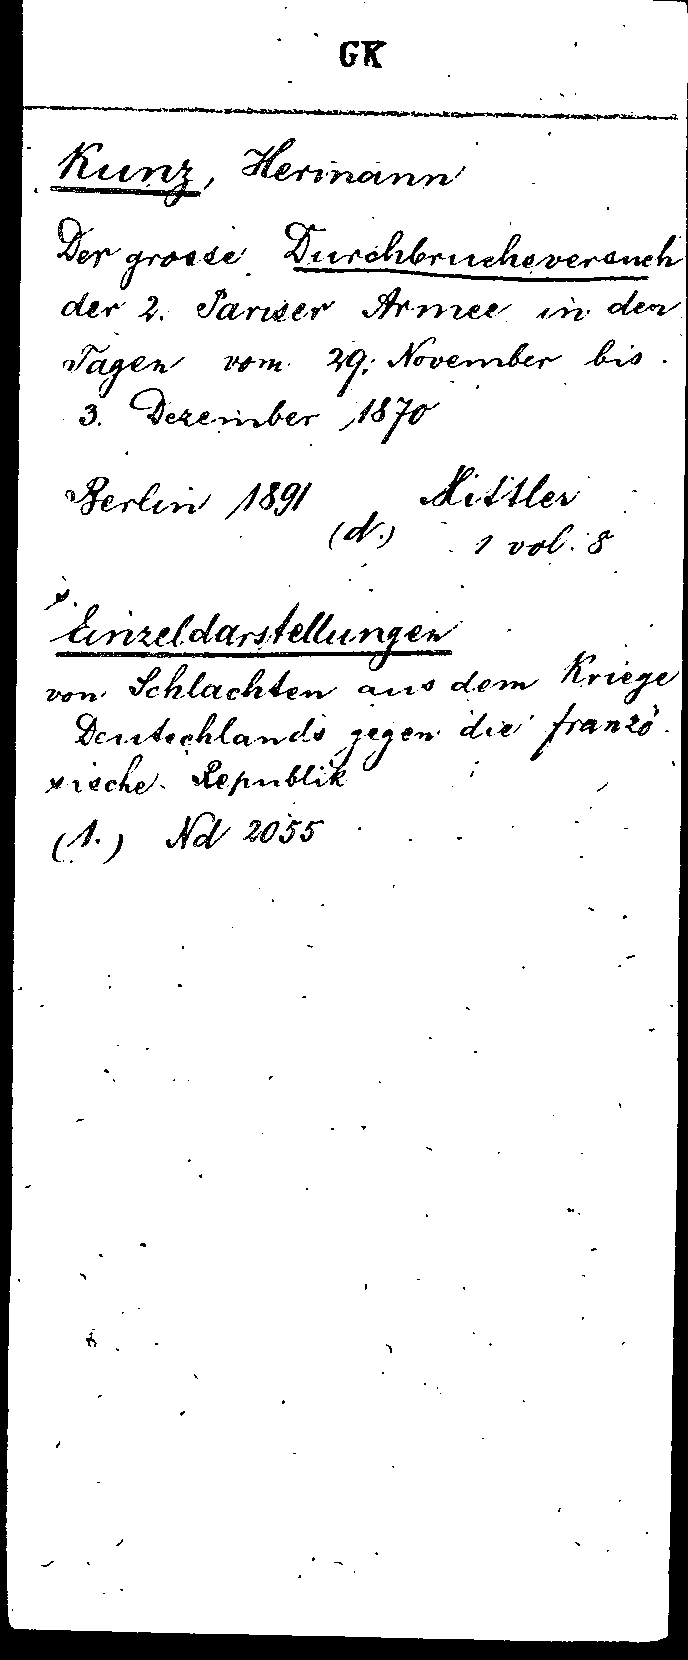 GK
Kunz, Hermann
Der grosse Durchbruchsversuch
der 2. Pariser Armee in den
Tagen vom 29. November bis
3. Dezember 1870
Berlin 1891 Mittler
(d.) 1 vol. 8
s. Einzeldarstellungen
von Schlachten aus dem Kriege
Deutschlands gegen die franzö
sische Republik
(1.) Nd 2055